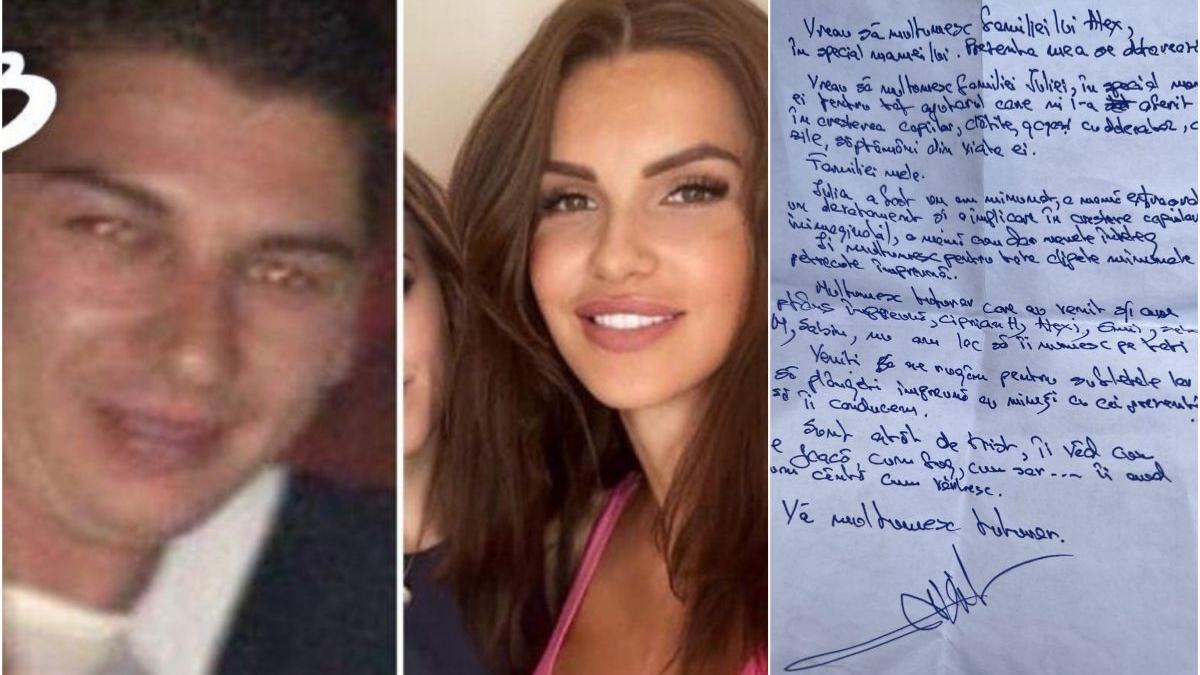 Vreau să multumesc familiei lui Alex,
în special mamei lui. Prietenha mea se datorează
Vreau să multumesc familiei Juliei, în special
ei pentru tot ajutorul care mi l-a oferit
în creșterea copiilor,
zile, săptămâni din viața ei.
Familiei mele.
Iulia a fost un om minunat, o mamă
un devotament și o implicare în creștere copiilor
inimaginabil, o mamă cum dar
Îi multumesc pentru tote clipele minunate
petrecute împreună.
Multumesc tuturor care au venit și au
plâns împreună, Ciprian H, Alexi,
Sabin, nu am loc să îi numesc pe toți
Veniti să ne rugăm pentru sufletele lor
să plângeți împreună cu mine și cu cei prezenti
să îi conducem.
Sunt atât de trist, îi văd cum
e joacă cum fug, cum sar.... îi aud
cum cântă cum vorbesc.
Vă multumesc tuturor.